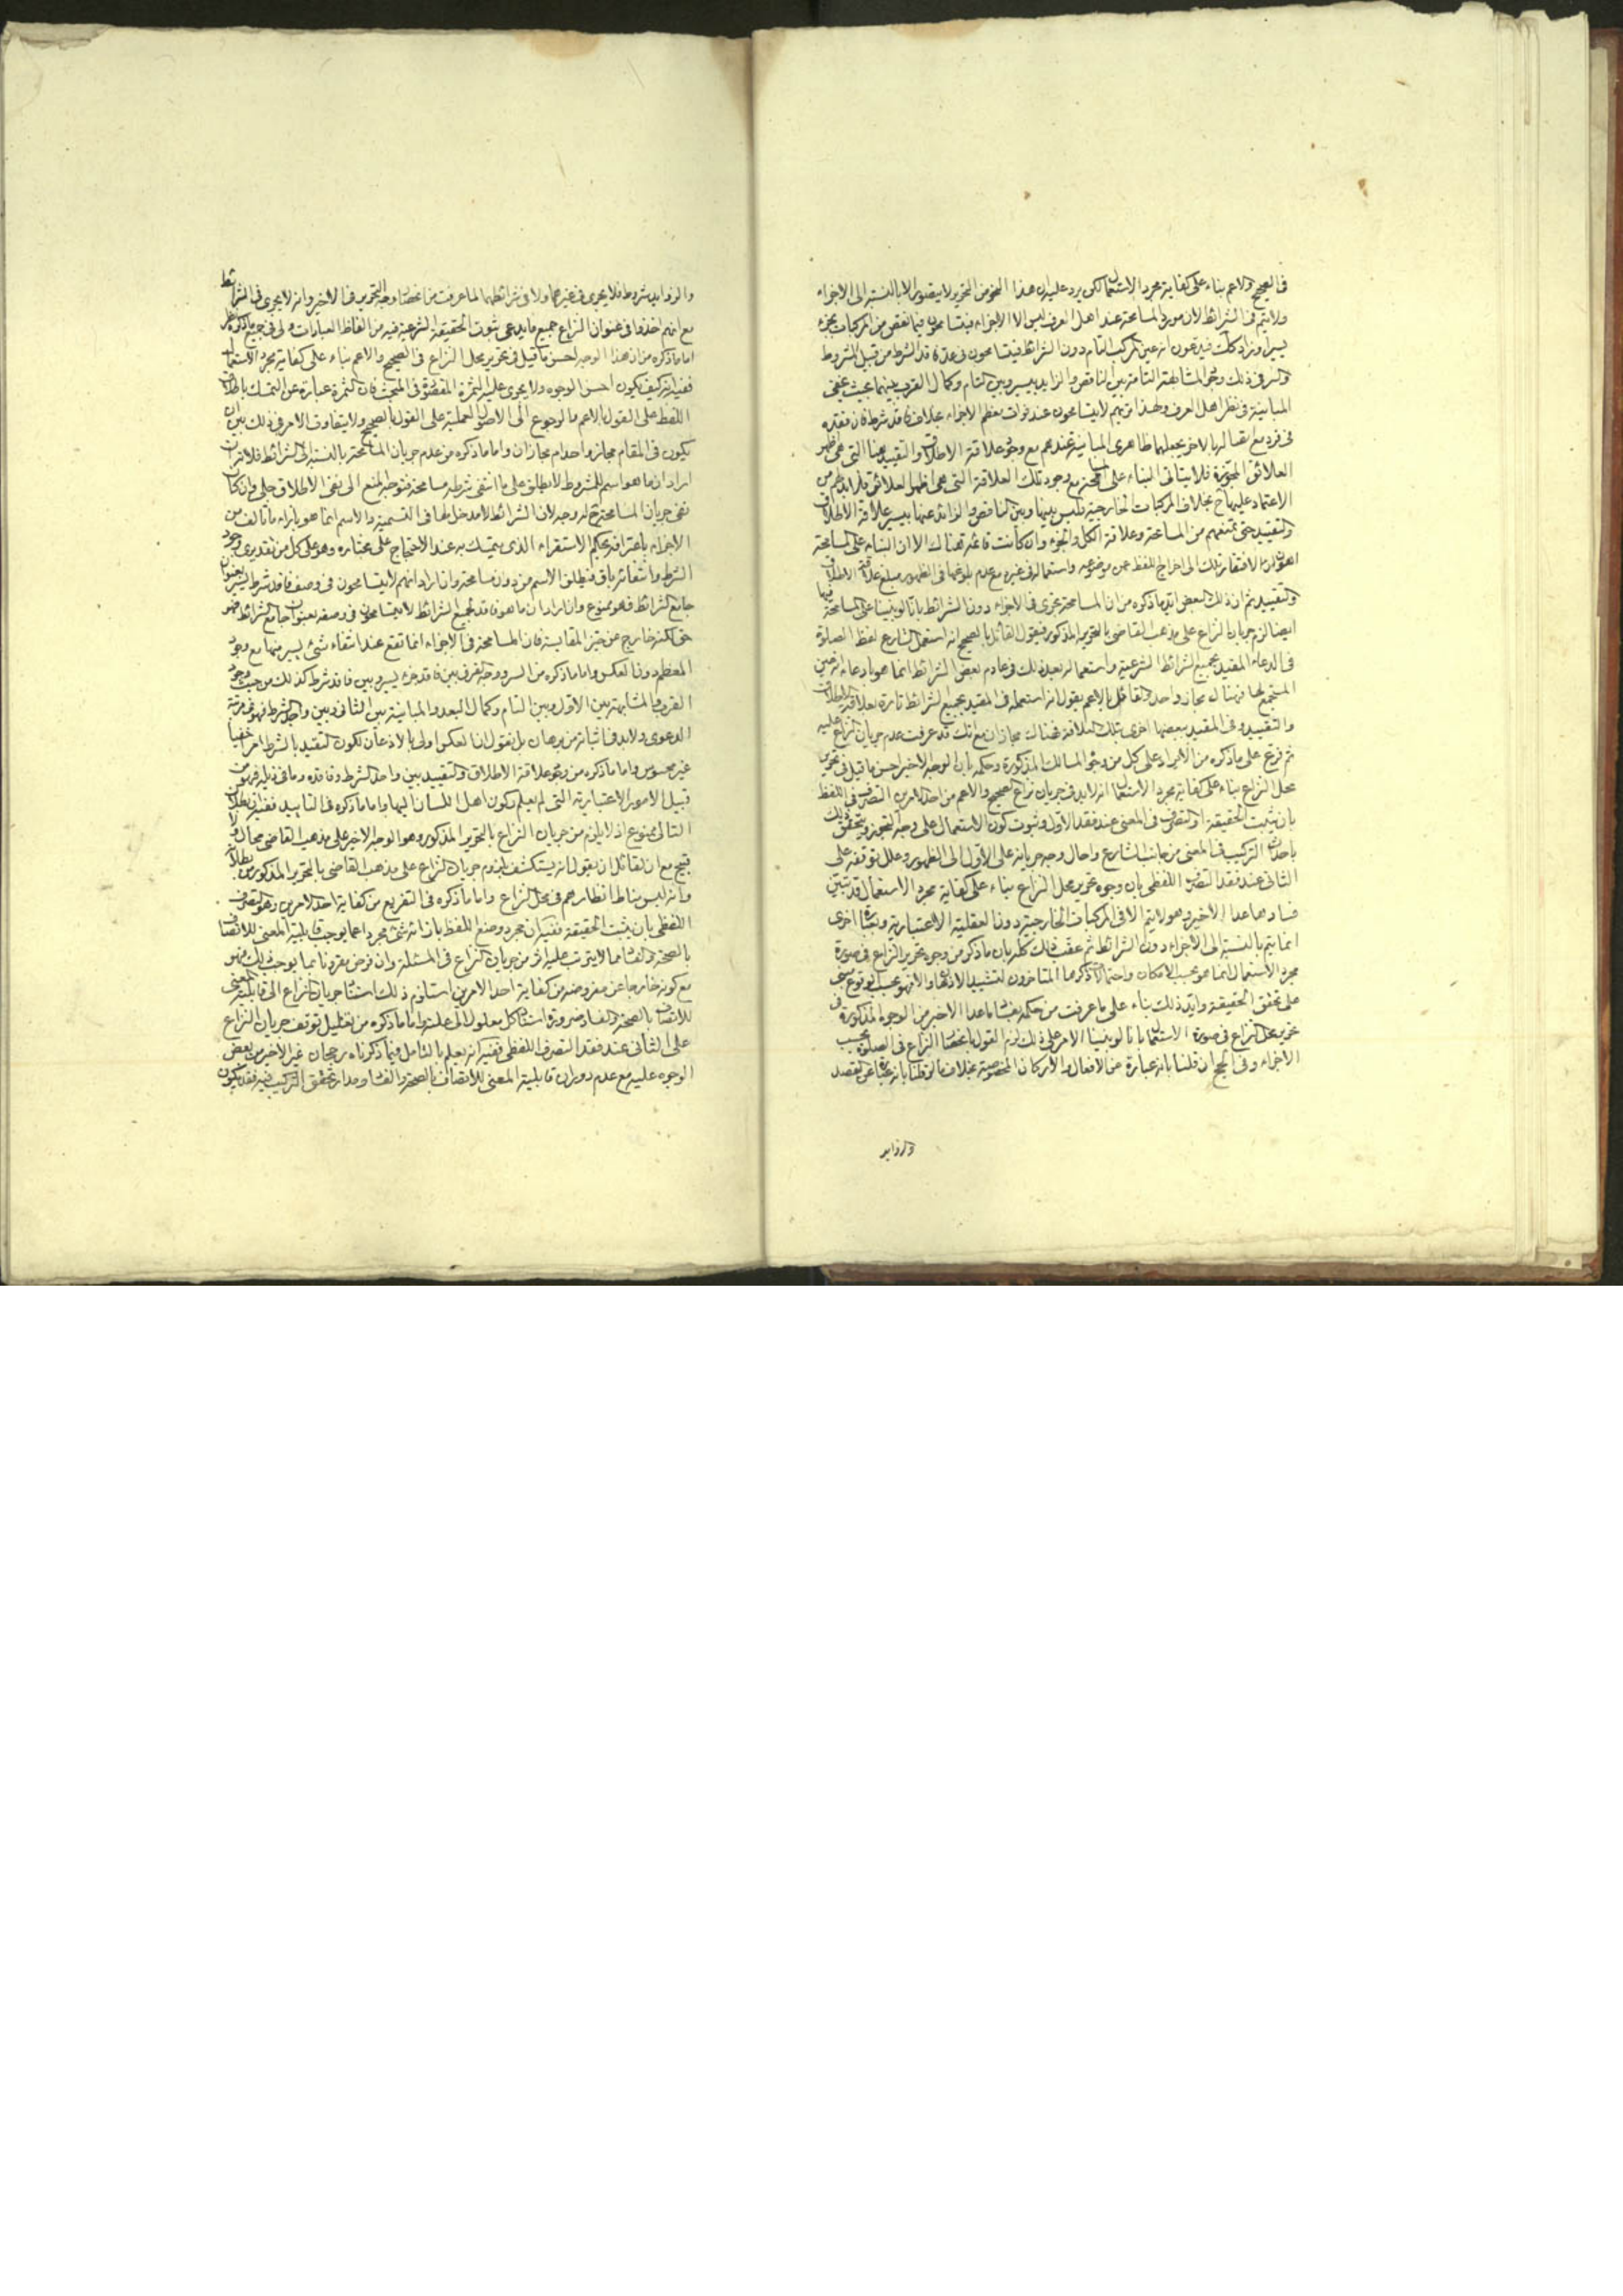 في الصحيح والاعم بناء على كفاية مجرد الاستعمال لكن يرد عليه ان هذا النحو من التحرير لا يتصور الا بالنسبة الى الاجزاء
ولا يتم في الشرائط لان مورد المسامحة عند اهل العرف ليس الا الاجزاء فيتسامحون فيما نقص من المركبات بجزء
يسير او زاد كذلك فيدعون انه عين المركب التام دون الشرائط فيتسامحون في عد فاقد الشرط من قبيل المشروط
والسر في ذلك وجود المشابهة التامة بين الناقص والزايد بيسير وبين التام وكمال القرب بينهما بحيث يخفى
المباينة في نظر اهل العرف ولهذا تريهم لا يتسامحون عند فوات معظم الاجزاء بخلاف فاقد شرط فان فقده
في فرد مع اتصاله بالاخر يجعلهما ظاهري المباينة عندهم مع وجود علاقة الاطلاق والتقييد هنا التي هي اظهر
العلائق المجوزة فلا يتاتى البناء على المسامحة مع وجود تلك العلاقة التي هي اظهر العلائق فلا بد من
الاعتماد عليها ح بخلاف المركبات الخارجية فليس بينها وبين الناقص والزائد عنها بيسير علاقة الاطلاق
والتقييد حتى تمنعهم من المسامحة وعلاقة الكل والجزء وان كانت قائمة هناك الا ان البناء على المسامحة
اهون لافتقار تلك الى اخراج اللفظ عن موضوعه واستعماله في غيره مع عدم بلوغها في الظهور مبلغ علاقة الاطلاق
والتقييد ثم ان ذلك البعض ايد ما ذكره من ان المسامحة تجرى في الاجزاء دون الشرائط بانا لو بنينا على المسامحة فيها
ايضا لزم جريان النزاع على مذهب القاضي بالتحرير المذكور فيقول القائل بالصحيح انه استعمل الشارع لفظ الصلوة
في الدعاء المقيد بجميع الشرائط الشرعية واستعماله بعد ذلك في عادم بعض الشرائط انما هو بادعاء انه عين
المستجمع لها فهناك مجاز واحد والقائل بالاعم يقول انه استعمله في المقيد بجميع الشرائط تارة بعلاقة الاطلاق
والتقييد وفي المقيد ببعضها اخرى بتلك العلاقة فهناك مجازان مع انك قد عرفت عدم جريان النزاع عليه
ثم فرع على ما ذكره من الايراد على كل من وجوه المسالك المذكورة وحكمه بان الوجه الاخير احسن ما قيل في تحرير
محل النزاع بناء على كفاية مجرد الاستعمال انه لا بد في جريان نزاع الصحيح والاعم من احد الامرين التصرف في اللفظ
بان يثبت الحقيقة او التصرف في المعنى عند فقد الاول وثبوت كون الاستعمال على وجه التجوز ويتحقق ذلك
باحداث التركيب في المعنى من جانب الشارع واحال وجه جريانه على الاول الى الظهور وعلل توقفه على
الثاني عند فقد التصرف اللفظي بان وجوه تحرير محل النزاع بناء على كفاية مجرد الاستعمال قد تبين
فساد ما عدا الاخير وهو لا يتم الا في المركبات الخارجية دون العقلية الاعتبارية وبعبارة اخرى
انما يتم بالنسبة الى الاجزاء دون الشرائط ثم عقب ذلك كله بان ما ذكر من وجوه تحرير النزاع في صورة
مجرد الاستعمال انما هو بحسب الامكان واحتمالات ذكرها المتاخرون لتشييد الاذهان والا فهو بحسب الوقوع مبني
على تحقق الحقيقة وايد ذلك بناء على ما عرفت من حكمه بفساد ما عدا الاخير من الوجوه المذكورة في
تحرير محل النزاع في صورة الاستعمال بانا لو بنينا الامر على ذلك لزم القول باختصاص النزاع في الصلوة بحسب
الاجزاء وفي الحج ان قلنا بانه عبارة عن الافعال والاركان المخصوصة بخلاف ما لو قلنا بانه عبارة عن القصد
والزوايد
والزوايد شروط فلا يجرى في غيرهما ولا في شرائطهما لما عرفت من اختصاص وجه التحرير في الاخير وانه لا يجرى في الشرائط
مع انهم اخذوا في عنوان النزاع جميع ما يدعى ثبوت الحقيقة الشرعية فيه من الفاظ العبادات ولى في جميع ما ذكره نظر
اما ما ذكره من ان هذا الوجه احسن ما قيل في تحرير محل النزاع في الصحيح والاعم بناء على كفاية مجرد الاستعمال
ففيه انه كيف يكون احسن الوجوه ولا يجرى عليه الثمرة المقصودة في المبحث فان الثمرة عبارة عن التمسك باطلاق
اللفظ على القول بالاعم والرجوع الى الاصول العملية على القول بالصحيح ولا يتفاوت الامر في ذلك بين ان
يكون في المقام مجاز واحد ام مجازان واما ما ذكره من عدم جريان المسامحة بالنسبة الى الشرائط فلانه ان
اراد ان ما هو اسم للمشروط لا يطلق على ما انتفى شرطه مسامحة فتوجه المنع الى نفى الاطلاق جلي وان كان
نفى جريان المسامحة ح له وجه لان الشرائط لا مدخل لها في التسمية والاسم انما هو بازاء ما تالف من
الاجزاء باعترافه بحكم الاستقراء الذى يتمسك به عند الاحتجاج على مختاره وهو على كل من تقديرى وجود
الشرط وانتفائه باق فيطلق الاسم من دون مسامحة وان اراد انهم لا يتسامحون في وصف فاقد شرط يسير بعنوان
جامع الشرائط فهو ممنوع وان اراد ان ما هو فاقد لجميع الشرائط لا يتسامحون في وصفه بعنوان جامع الشرائط فهو
حق لكنه خارج عن حيز المقايسة فان المسامحة في الاجزاء انما تقع عند انتفاء شيء يسير منها مع وجود
المعظم دون العكس واما ما ذكره من السر ووجه الفرق بين فاقد جزء يسير وبين فاقد شرط كذلك من حيث وجود
القرب والمشابهة بين الاول وبين التام وكمال البعد والمباينة بين الثاني وبين واجد الشرط فهو
الدعوى ولا بد في اثباته من برهان بل نقول ان العكس اولى بالاذعان لكون التقييد بالشرط امرا خفيا
غير محسوس واما ما ذكره من وجود علاقة الاطلاق والتقييد بين واجد الشرط وفاقده وما في ذيله فهو من
قبيل الامور الاعتبارية التي لم يعلم ركون اهل اللسان اليها واما ما ذكره في التاييد ففيه ان بطلان
التالي ممنوع اذ لا يلزم من جريان النزاع بالتحرير المذكور وهو الوجه الاخير على مذهب القاضي محال ولا
قبيح مع ان لقائل ان يقول انه يستكشف بلزوم جريان النزاع على مذهب القاضي بالتحرير المذكور بطلانه
وانه ليس مناط انظارهم في محل النزاع واما ما ذكره في التفريع من كفاية احد الامرين وهو التصرف
اللفظي بان يثبت الحقيقة ففيه ان مجرد وضع اللفظ بازاء شيء مجردا عما يوجب قابلية المعنى للاتصاف
بالصحة والفساد مما لا يترتب عليه اثر من جريان النزاع في المسئلة وان فرض مقرونا بما يوجب ذلك فهو
مع كونه خارجا عن مفروضه من كفاية احد الامرين استلزم ذلك استناد جريان النزاع الى قابلية المعنى
للاتصاف بالصحة والفساد ضرورة استناد كل معلول الى علته واما ما ذكره من تعليل توقف جريان النزاع
على الثاني عند فقد التصرف اللفظي ففيه انه يعلم بالتامل فيما ذكرناه رجحان غير الاخير من بعض
الوجوه عليه مع عدم دوران قابلية المعنى للاتصاف بالصحة والفساد مدار تحقق التركيب فيه فقد يكون